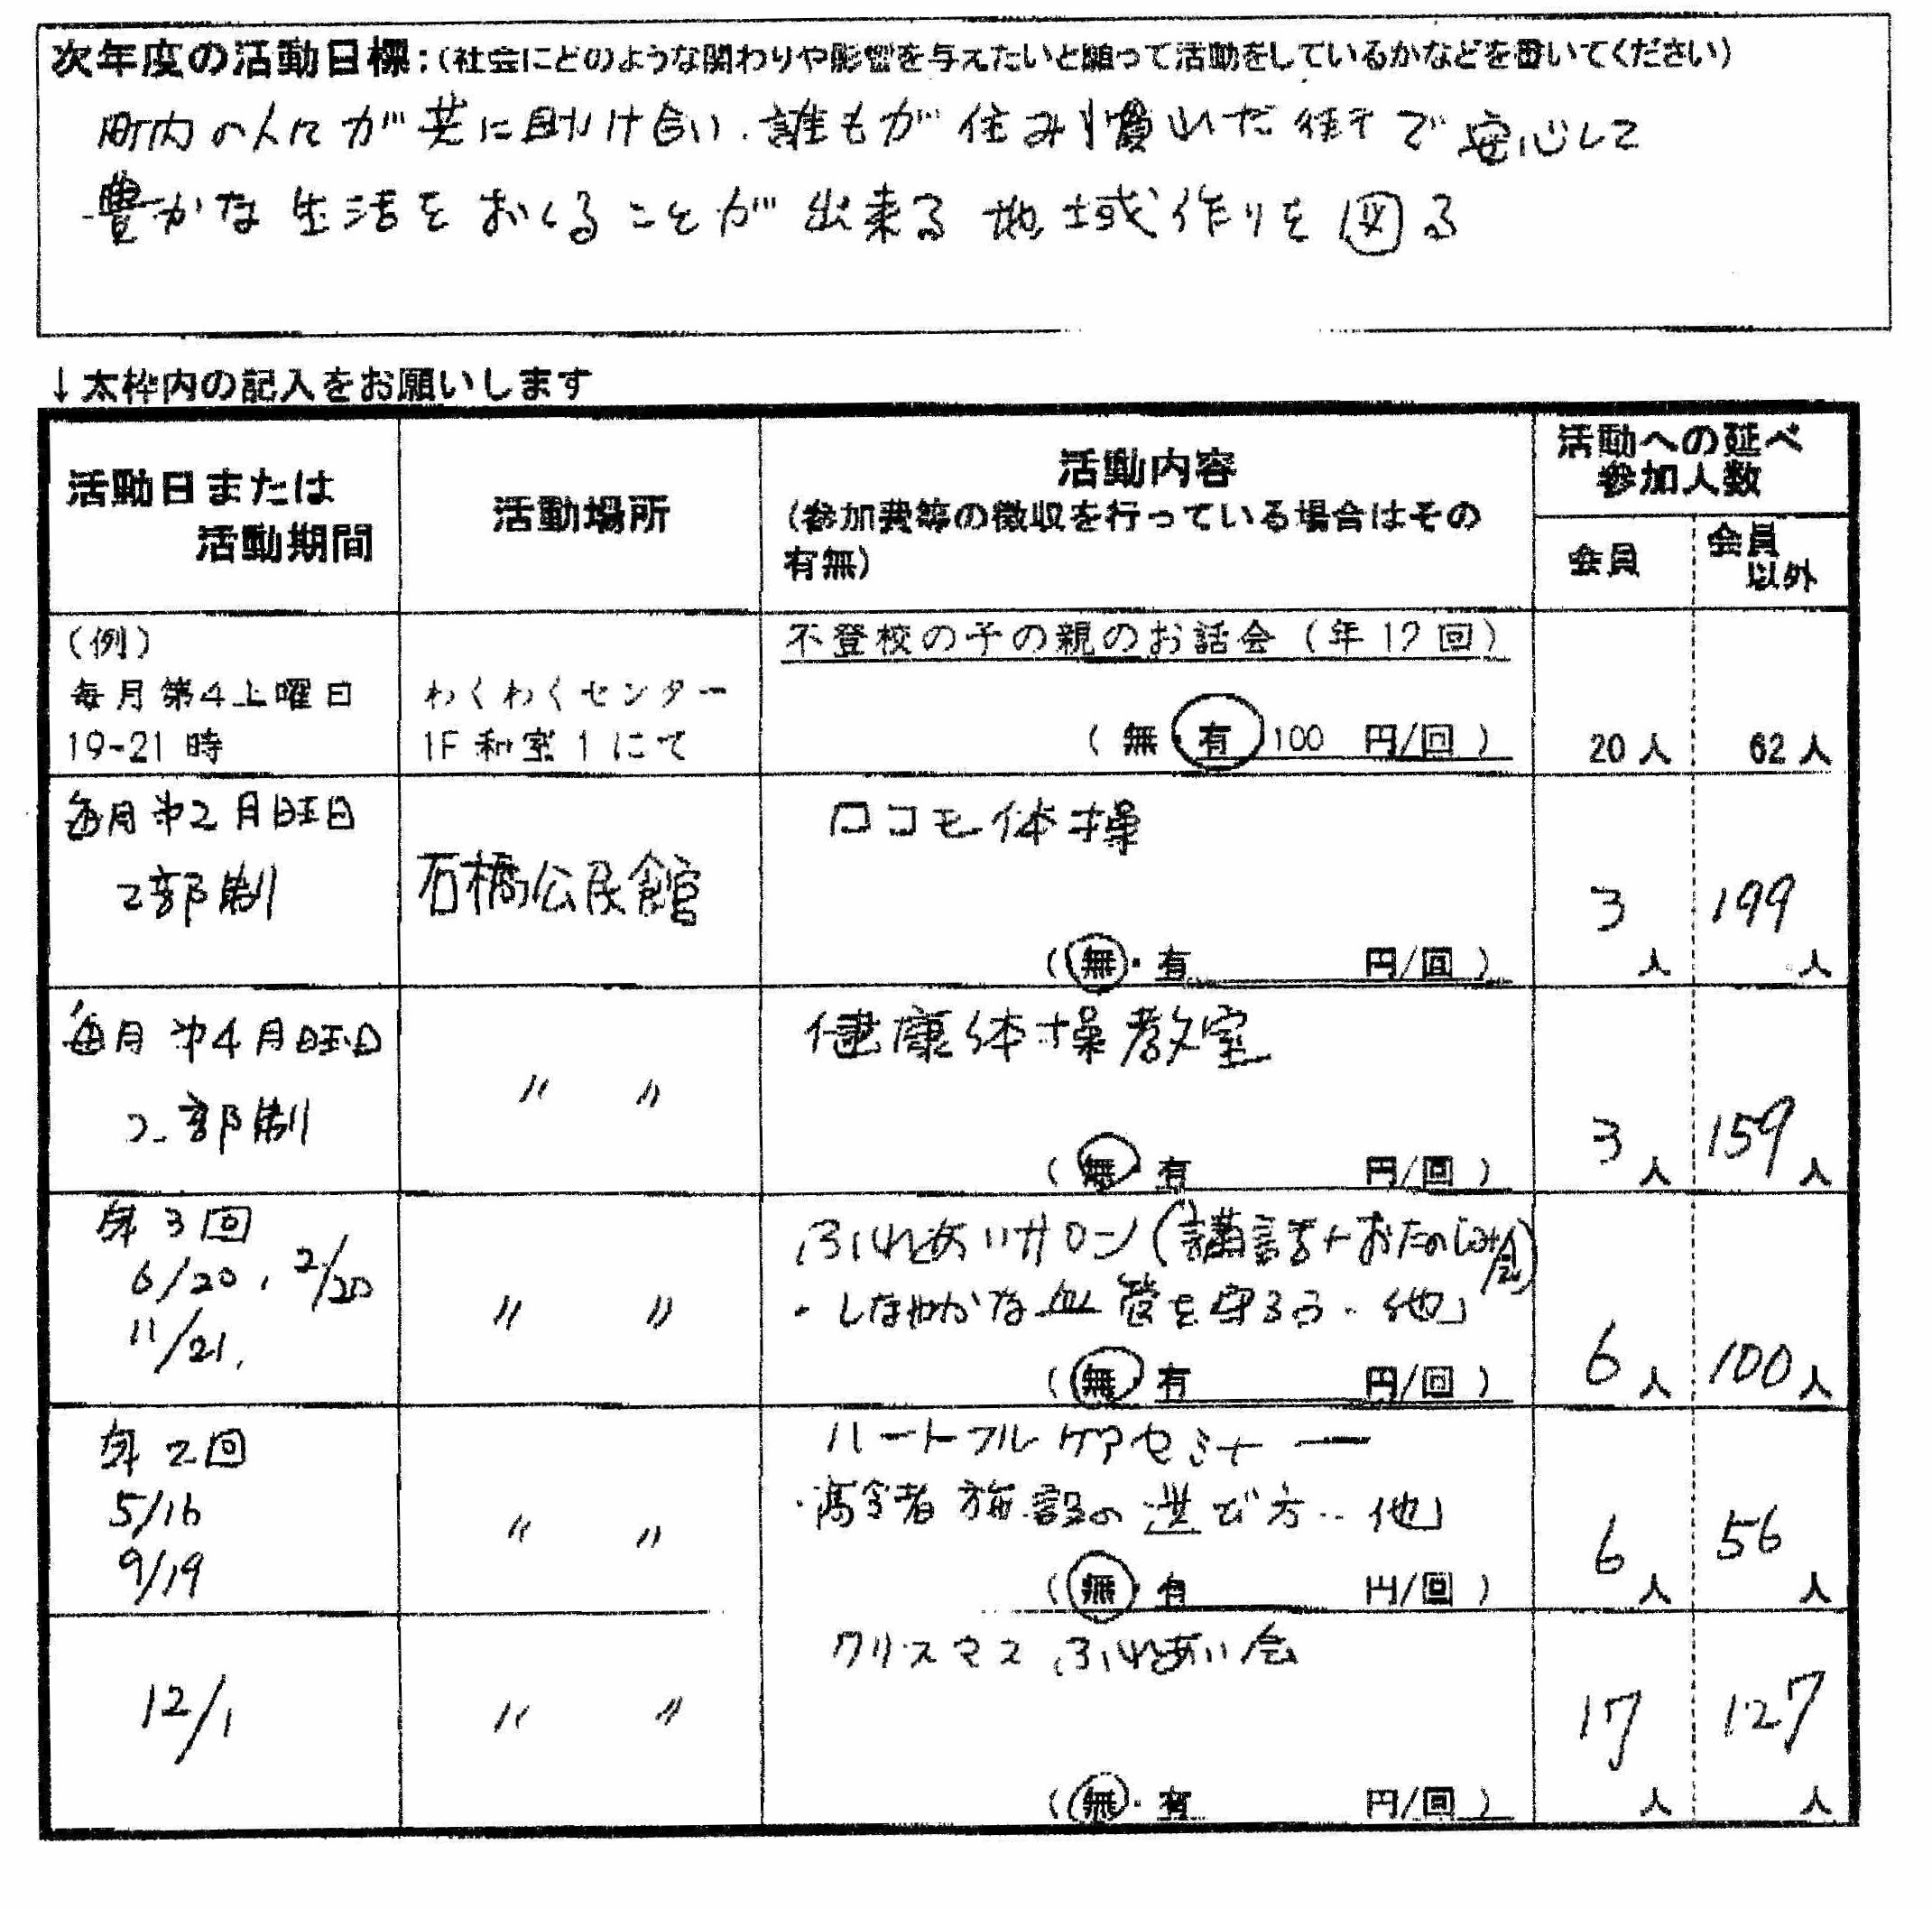 次年度の活動目標:(社会にどのような関わりや影響を与えたいと願って活動をしているかなどを書いてください)
町内の人々が共に助け合い、誰もが住み慣れた街で安心して
豊かな生活をおくることが出来る地域作りを図る
↓太枠内の記入をお願いします
活動日または
活動期間
活動場所
活動内容
(参加費等の徴収を行っている場合はその
有無)
活動への延べ
参加人数
会員
会員
以外
(例)
毎月第4土曜日
19-21時
わくわくセンター
1F和室1にて
不登校の子の親のお話会(年12回)
(無・有 100 円/回)
20人
62人
毎月第2月曜日
2部制
石橋公民館
ロコモ体操
(無・有 円/回)
3人
199人
毎月第4月曜日
2部制
〃 〃
健康体操教室
(無・有 円/回)
3人
159人
年3回
6/20、2/20
11/21、
〃 〃
ふれあいサロン(講話+おたのしみ会)
・しなやかな血管を守ろう・他」
(無・有 円/回)
6人
100人
年2回
5/16
9/19
〃 〃
ハートフルケアセミナー
・高令者施設の選び方・・他」
(無・有 円/回)
6人
56人
12/1
〃 〃
クリスマスふれあい会
(無・有 円/回)
17人
127人